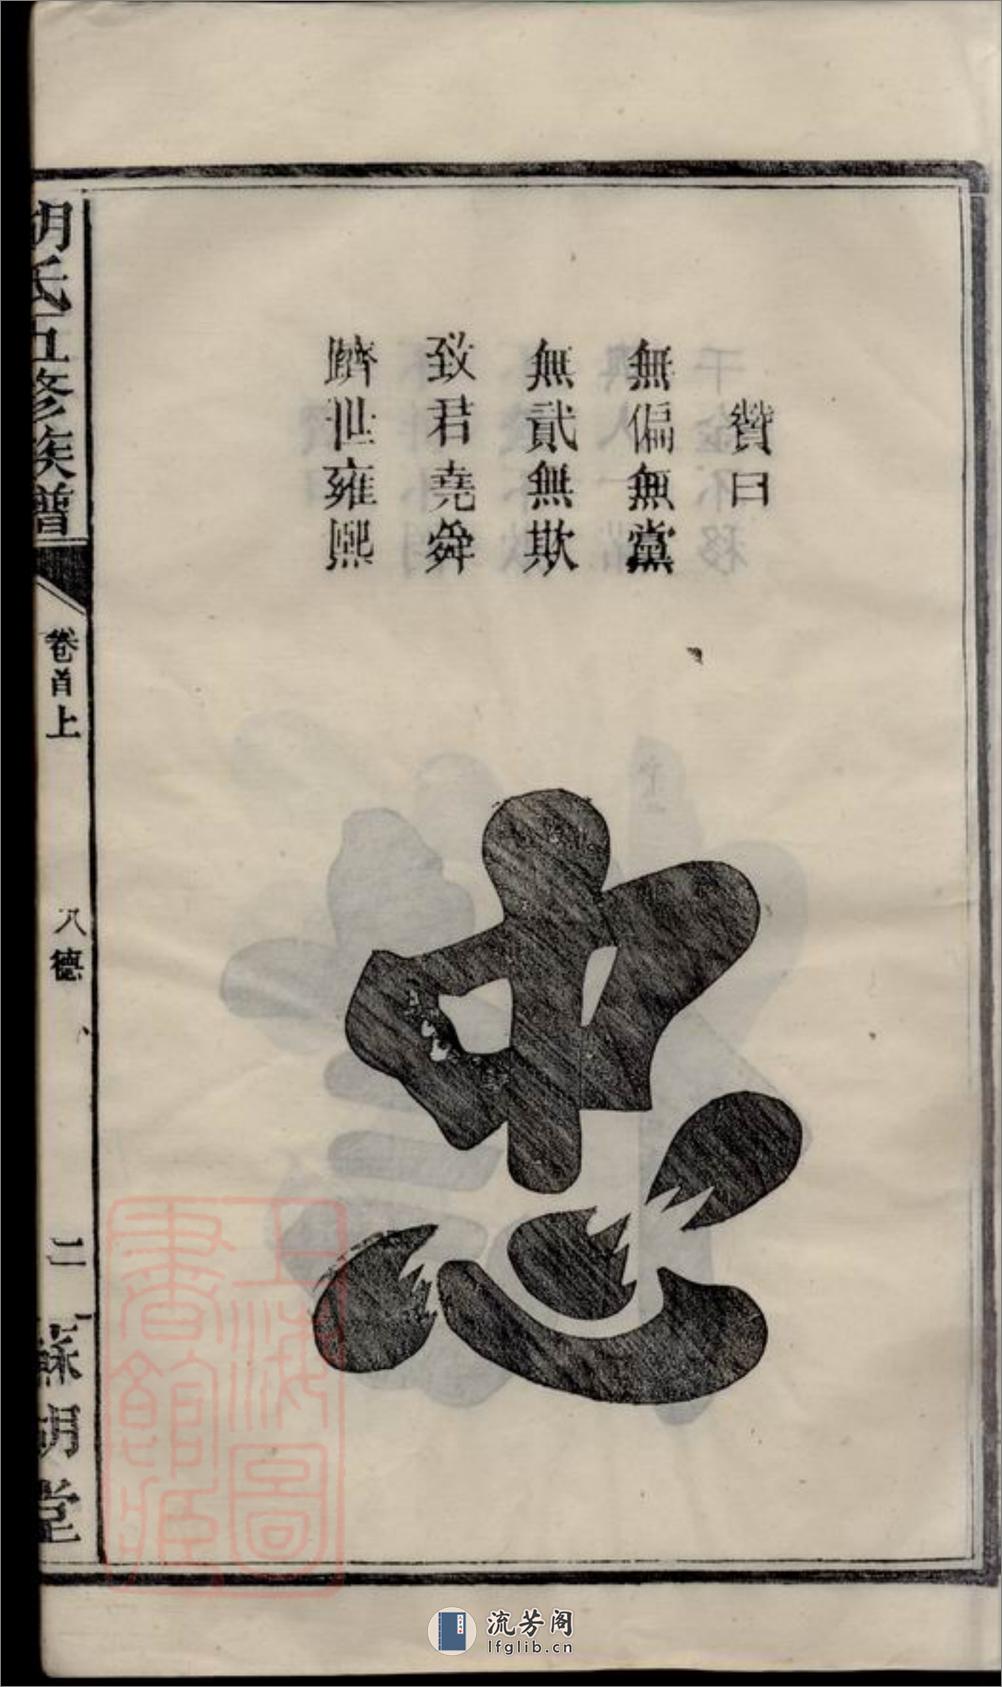 贊曰
無偏無黨
無貳無欺
致君堯舜
躋世雍熙
忠
胡氏五修族譜
卷首上
八德
二
蘇湖堂
上海圖書館藏
流芳阁
lfglib.cn